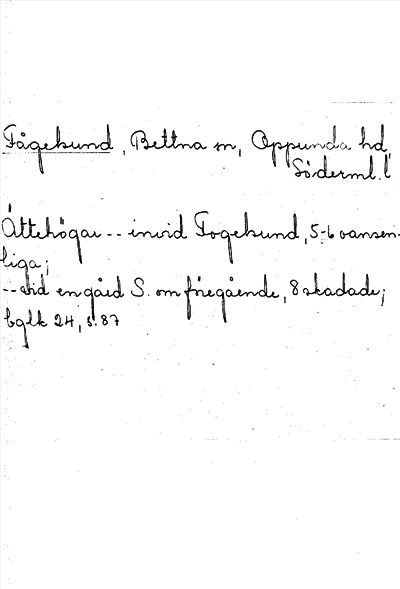 Fågelund, Bettna sn, Oppunda hd,
Söderml. l
Ättehögar -- invid Fogelund, 5-6 oansen-
liga;
-- vid en gård S. om föregående, 8 skadade;
bglk 24, s. 87